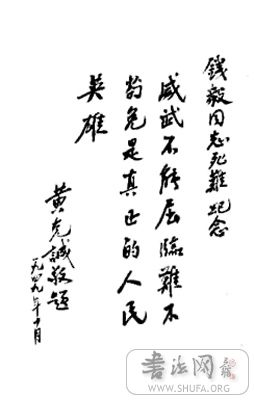 錢毅同志死難紀念
威武不能屈臨難不
苟免是真正的人民
英雄
黄克誠敬題
一九四九年十月
书法网
WWW.SHUFA.ORG